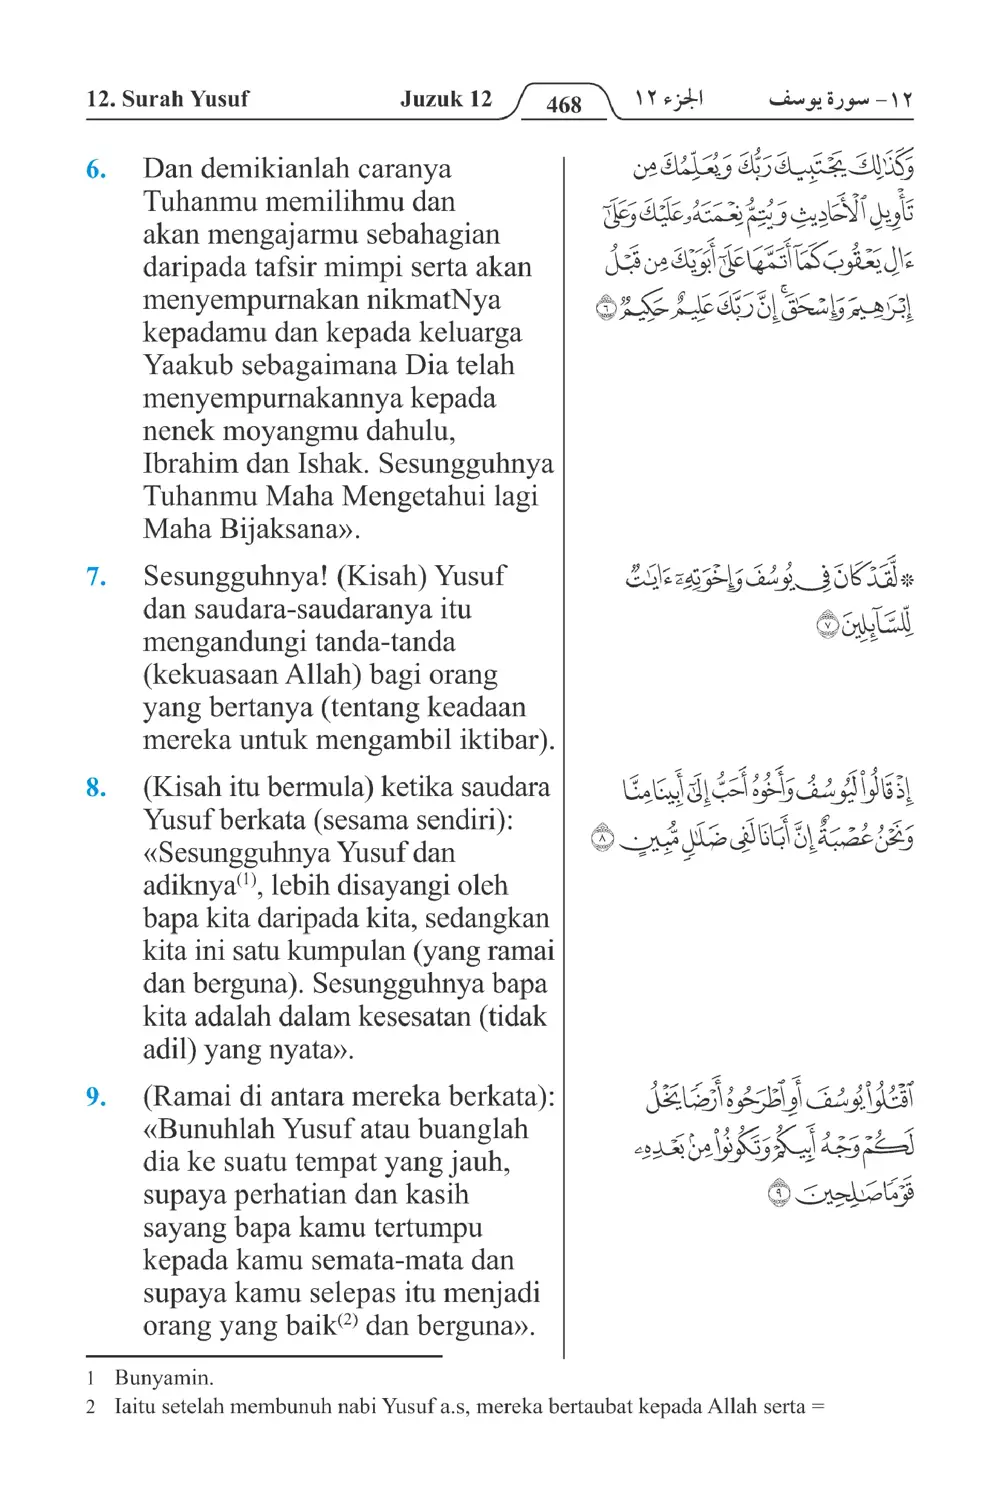 12. Surah Yusuf Juzuk 12 468 الجزء ١٢ ١٢- سورة يوسف
6. Dan demikianlah caranya
Tuhanmu memilihmu dan
akan mengajarmu sebahagian
daripada tafsir mimpi serta akan
menyempurnakan nikmatNya
kepadamu dan kepada keluarga
Yaakub sebagaimana Dia telah
menyempurnakannya kepada
nenek moyangmu dahulu,
Ibrahim dan Ishak. Sesungguhnya
Tuhanmu Maha Mengetahui lagi
Maha Bijaksana».
وَكَذَٰلِكَ يَجْتَبِيكَ رَبُّكَ وَيُعَلِّمُكَ مِن
تَأْوِيلِ ٱلْأَحَادِيثِ وَيُتِمُّ نِعْمَتَهُۥ عَلَيْكَ وَعَلَىٰٓ
ءَالِ يَعْقُوبَ كَمَآ أَتَمَّهَا عَلَىٰٓ أَبَوَيْكَ مِن قَبْلُ
إِبْرَٰهِيمَ وَإِسْحَٰقَۚ إِنَّ رَبَّكَ عَلِيمٌ حَكِيمٌ ۝٦
7. Sesungguhnya! (Kisah) Yusuf
dan saudara-saudaranya itu
mengandungi tanda-tanda
(kekuasaan Allah) bagi orang
yang bertanya (tentang keadaan
mereka untuk mengambil iktibar).
* لَّقَدْ كَانَ فِي يُوسُفَ وَإِخْوَتِهِۦٓ ءَايَٰتٌ
لِّلسَّآئِلِينَ ۝٧
8. (Kisah itu bermula) ketika saudara
Yusuf berkata (sesama sendiri):
«Sesungguhnya Yusuf dan
adiknya(1), lebih disayangi oleh
bapa kita daripada kita, sedangkan
kita ini satu kumpulan (yang ramai
dan berguna). Sesungguhnya bapa
kita adalah dalam kesesatan (tidak
adil) yang nyata».
إِذْ قَالُوا۟ لَيُوسُفُ وَأَخُوهُ أَحَبُّ إِلَىٰٓ أَبِينَا مِنَّا
وَنَحْنُ عُصْبَةٌ إِنَّ أَبَانَا لَفِى ضَلَٰلٍ مُّبِينٍ ۝٨
9. (Ramai di antara mereka berkata):
«Bunuhlah Yusuf atau buanglah
dia ke suatu tempat yang jauh,
supaya perhatian dan kasih
sayang bapa kamu tertumpu
kepada kamu semata-mata dan
supaya kamu selepas itu menjadi
orang yang baik(2) dan berguna».
ٱقْتُلُوا۟ يُوسُفَ أَوِ ٱطْرَحُوهُ أَرْضًا يَخْلُ
لَكُمْ وَجْهُ أَبِيكُمْ وَتَكُونُوا۟ مِنۢ بَعْدِهِۦ
قَوْمًا صَٰلِحِينَ ۝٩
1 Bunyamin.
2 Iaitu setelah membunuh nabi Yusuf a.s, mereka bertaubat kepada Allah serta =